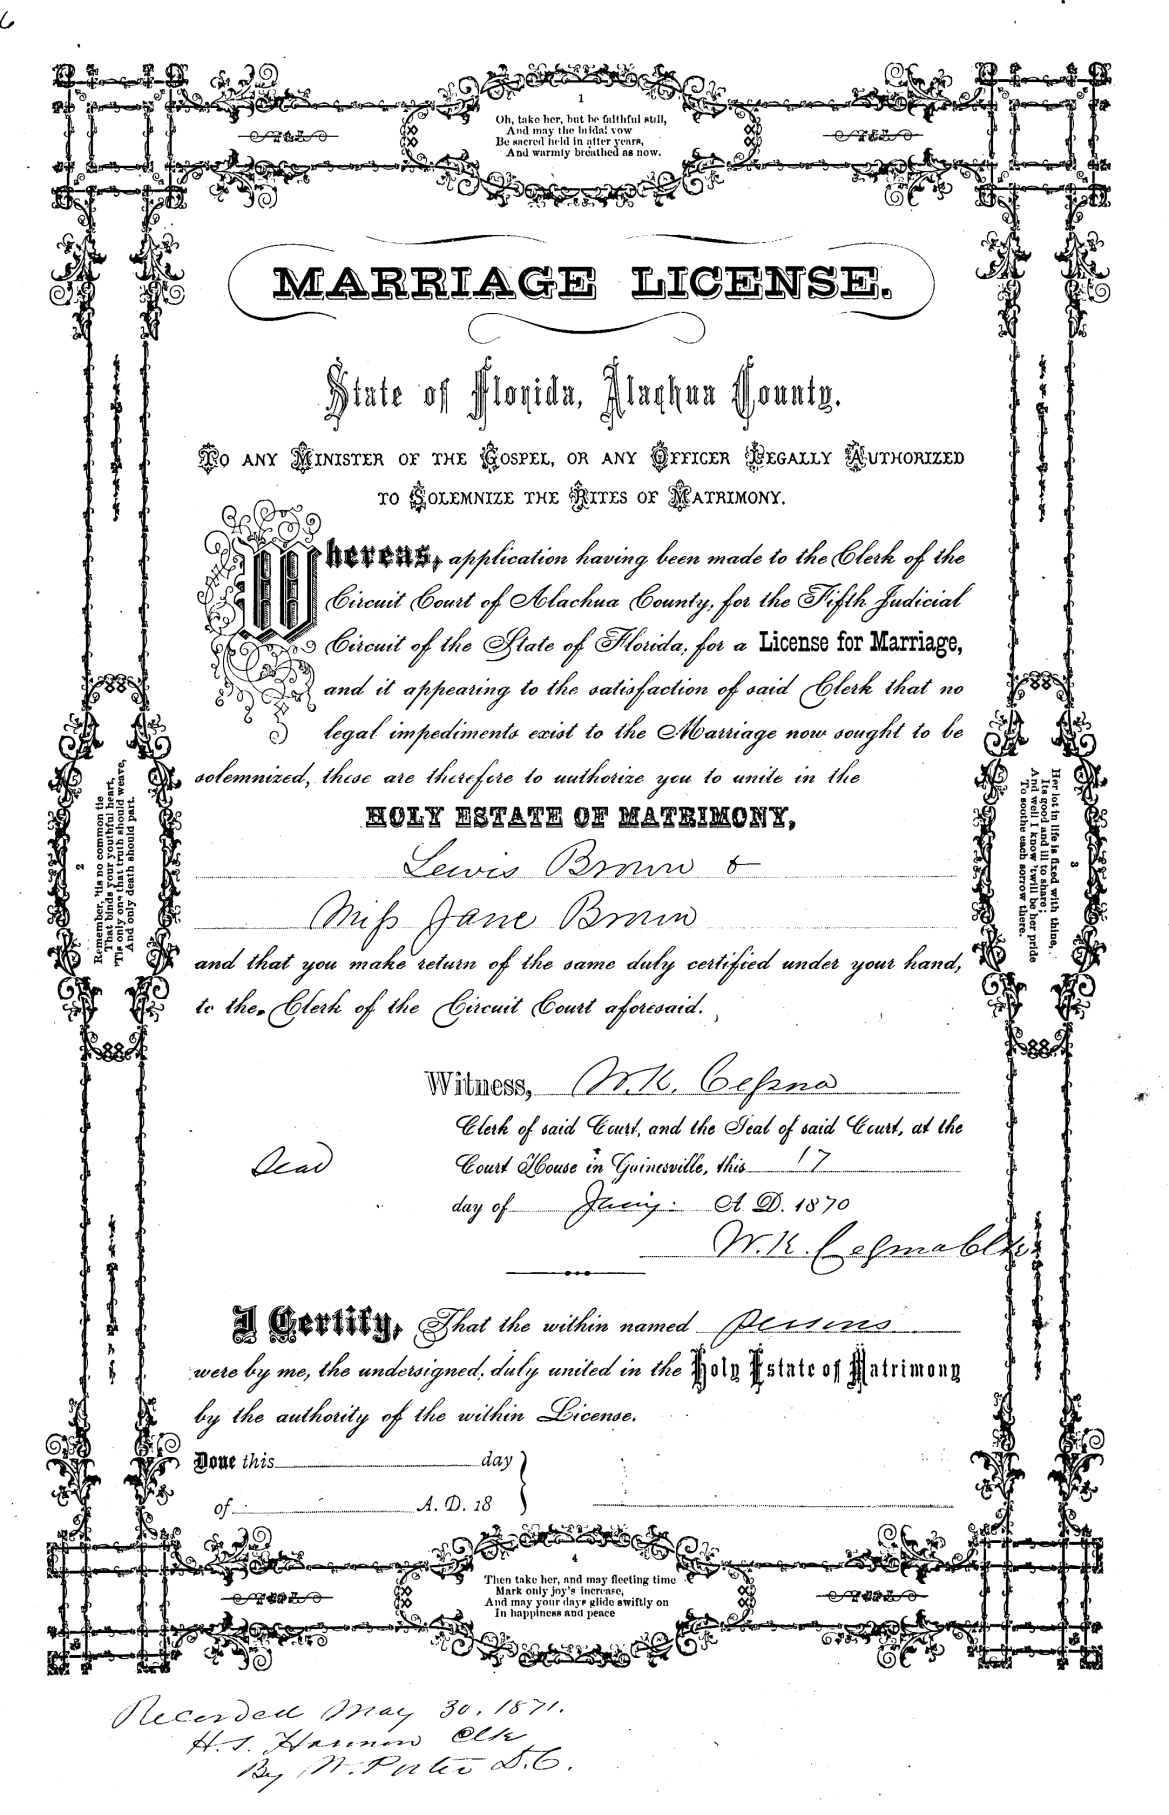 6
1
Oh, take her, but be faithful still,
And may the bridal vow
Be sacred held in after years,
And warmly breathed as now.
MARRIAGE LICENSE.
State of Florida, Alachua County.
TO ANY MINISTER OF THE GOSPEL, OR ANY OFFICER LEGALLY AUTHORIZED
TO SOLEMNIZE THE RITES OF MATRIMONY.
Whereas, application having been made to the Clerk of the
Circuit Court of Alachua County, for the Fifth Judicial
Circuit of the State of Florida, for a License for Marriage,
and it appearing to the satisfaction of said Clerk that no
legal impediments exist to the Marriage now sought to be
solemnized, these are therefore to authorize you to unite in the
HOLY ESTATE OF MATRIMONY,
Lewis Brown &
Miss Jane Brown
and that you make return of the same duly certified under your hand,
to the Clerk of the Circuit Court aforesaid.
2
Remember, 'tis no common tie
That binds your youthful heart,
'Tis only one that truth should weave,
And only death should part.
3
Her lot in life is fixed with thine,
Its good and ill to share;
And well I know 'twill be her pride
To soothe each sorrow there.
Witness, W. K. Cessna
Clerk of said Court, and the Seal of said Court, at the
Seal
Court House in Gainesville, this 17
day of Jany. A. D. 1870
W. K. Cessna Clk
I Certify, That the within named persons
were by me, the undersigned, duly united in the Holy Estate of Matrimony
by the authority of the within License.
Done this day
of A. D. 18
4
Then take her, and may fleeting time
Mark only joy's increase,
And may your days glide swiftly on
In happiness and peace
Recorded May 30. 1871.
H. S. Harmon Clk
By W. Porter D. C.